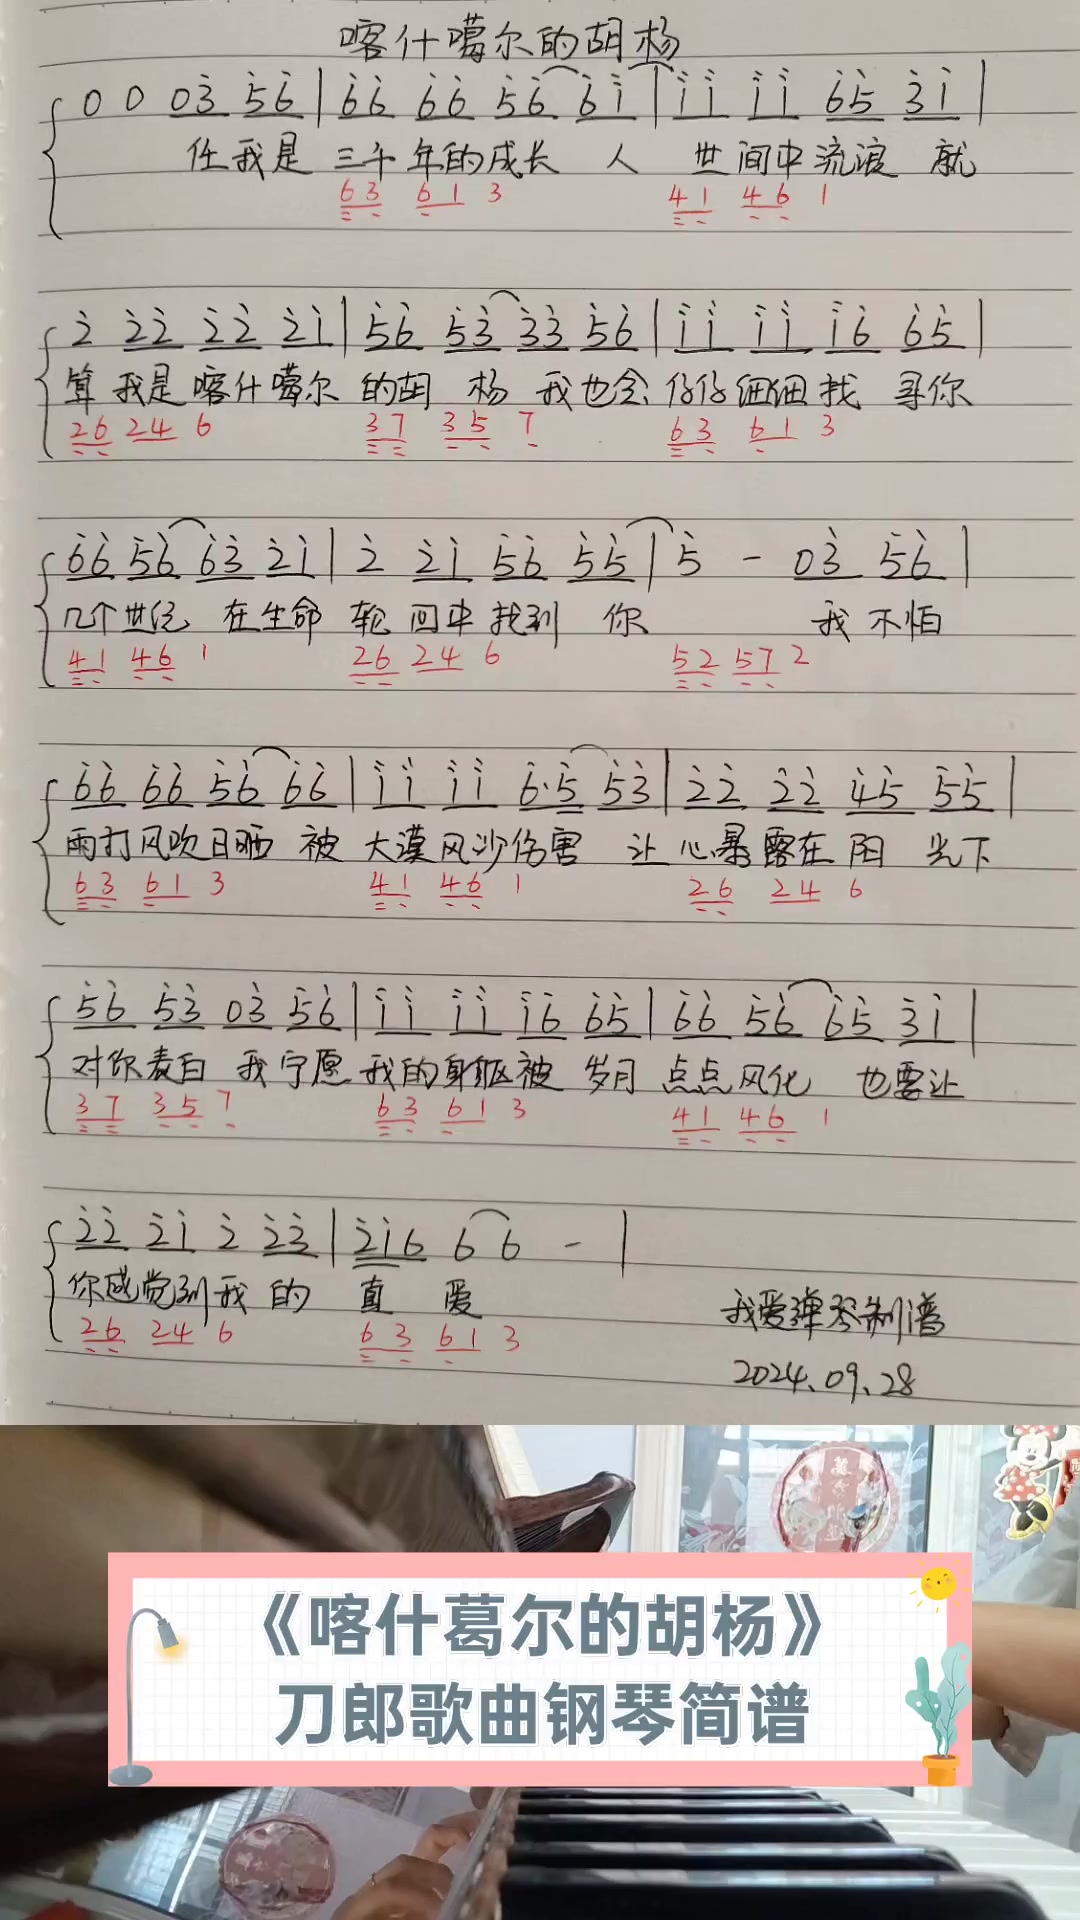 喀什噶尔的胡杨
0 0 03̇ 5̇6̇ | 6̇6̇ 6̇6̇ 5̇6̇ 6̇i̇ | i̇i̇ i̇i̇ 6̇5̇ 3̇i̇ |
任我是 三千年的成长 人 世间中流浪 就
63 61 3 41 46 1
2̇ 2̇2̇ 2̇2̇ 2̇i̇ | 5̇6̇ 5̇3̇ 3̇3̇ 5̇6̇ | i̇i̇ i̇i̇ i̇6̇ 6̇5̇ |
算 我是喀什噶尔 的胡 杨 我也会 仔仔细细找 寻你
26 24 6 37 35 7 63 61 3
6̇6̇ 5̇6̇ 6̇3̇ 2̇i̇ | 2̇ 2̇i̇ 5̇6̇ 5̇5̇ | 5̇ - 03̇ 5̇6̇ |
几个世纪 在生命 轮 回中找到 你 我不怕
41 46 1 26 24 6 52 57 2
6̇6̇ 6̇6̇ 5̇6̇ 6̇6̇ | i̇i̇ i̇i̇ 6̇·5̇ 5̇3̇ | 2̇2̇ 2̇2̇ 4̇5̇ 5̇5̇ |
雨打风吹日晒 被 大漠风沙伤害 让 心暴露在 阳 光下
63 61 3 41 46 1 26 24 6
5̇6̇ 5̇3̇ 03̇ 5̇6̇ | i̇i̇ i̇i̇ i̇6̇ 6̇5̇ | 6̇6̇ 5̇6̇ 6̇5̇ 3̇i̇ |
对你表白 我宁愿 我的身躯被 岁月 点点风化 也要让
37 35 7 63 61 3 41 46 1
2̇2̇ 2̇i̇ 2̇ 2̇3̇ | 2̇i̇6 6 6 - |
你感觉到我 的 真 爱
26 24 6 63 61 3
我爱弹琴制谱
2024.09.28
《喀什葛尔的胡杨》
刀郎歌曲钢琴简谱